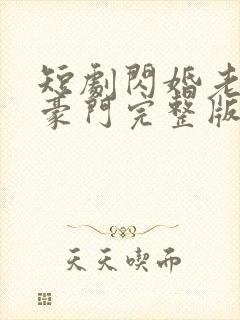 短劇閃婚老
豪門完整版
天天喫而